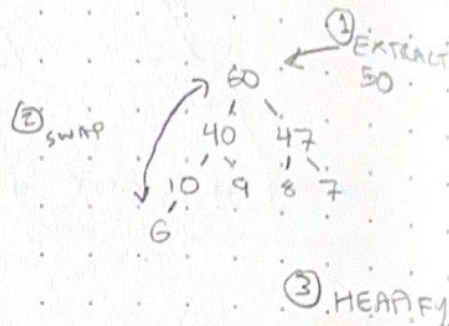 ① EXTRACT
50
50
② SWAP
40 47
10 9 8 7
6
③ HEAPIFY